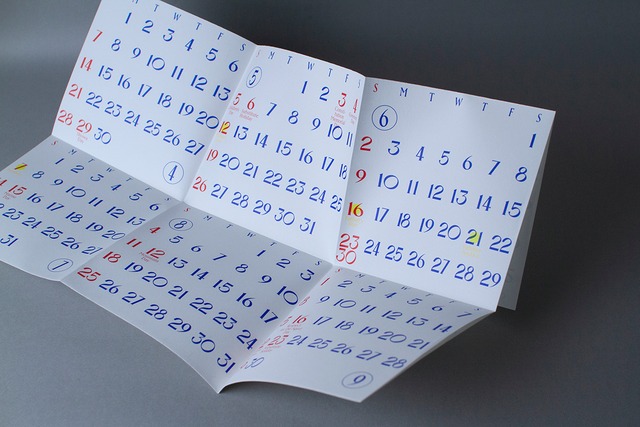 M T W T F S
1 2 3 4 5 6
7 8 9 10 11 12 13
14 15 16 17 18 19 20
21 22 23 24 25 26 27
28 29 30
4
M T W T F S
5
1 2 3 4
5 6 7 8 9 10 11
12 13 14 15 16 17 18
19 20 21 22 23 24 25
26 27 28 29 30 31
S M T W T F S
6
1
2 3 4 5 6 7 8
9 10 11 12 13 14 15
16 17 18 19 20 21 22
23 24 25 26 27 28 29
30
S M T W T F S
1 2 3 4 5 6
7 8 9 10 11 12 13
15 16 17 18 19 20
23 24 25 26 27
31
7
S M T W T F S
8
1 2 3
4 5 6 7 8 9 10
11 12 13 14 15 16 17
18 19 20 21 22 23 24
25 26 27 28 29 30 31
S M T W T F S
1 2 3 4 5 6 7
9 10 11 12 13 14
16 17 18 19 20 21
23 24 25 26 27 28
30
9